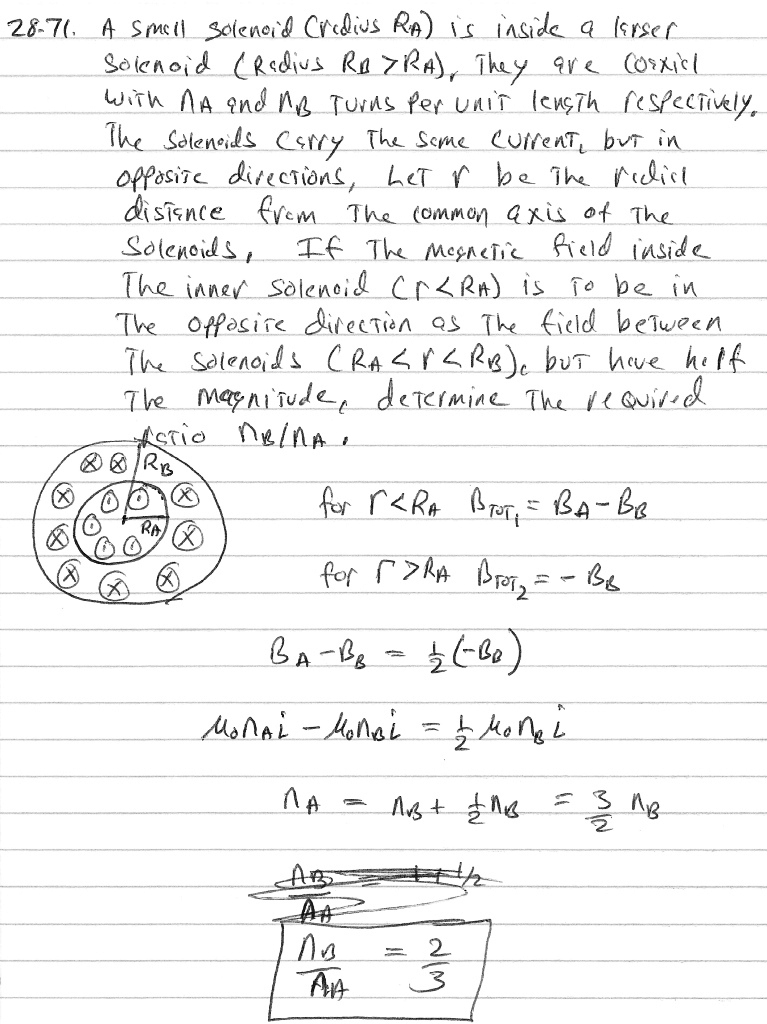 28-71. A small solenoid (radius RA) is inside a larger
Solenoid (Radius RB > RA), They are coaxial
with nA and nB turns per unit length respectively.
The solenoids carry the same current, but in
opposite directions, Let r be the radial
distance from the common axis of the
Solenoids, If the magnetic field inside
the inner solenoid (r<RA) is to be in
the opposite direction as the field between
the solenoids (RA<r<RB), but have half
the magnitude, determine the required
ratio nB/nA.
RB
RA
for r<RA BTOT1 = BA - BB
for r>RA BTOT2 = - BB
BA - BB = 1/2 (-BB)
μ0nAi - μ0nBi = 1/2 μ0nBi
nA = nB + 1/2 nB = 3/2 nB
nB/nA = 2/3